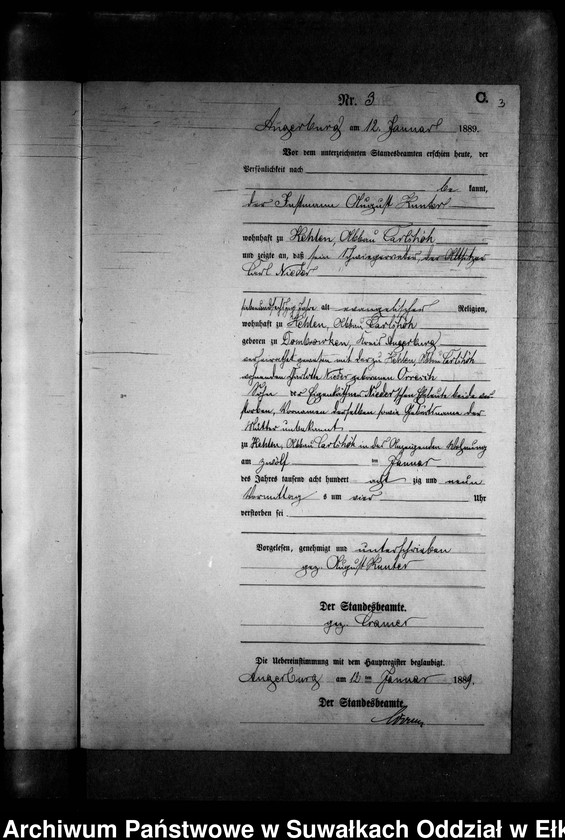 Nr. 3
C.
3
Angerburg am 12. Januar 1889.
Vor dem unterzeichneten Standesbeamten erschien heute, der
Persönlichkeit nach
be kannt,
der Instmann August Kunter
wohnhaft zu Kehlen, Abbau Carlshöh
und zeigte an, daß sein Schwiegervater, der Altsitzer
Carl Nieder
Jahre alt evangelischer Religion,
wohnhaft zu Kehlen, Abbau Carlshöh
geboren zu Dombrowken, Kreis Angerburg
verheirathet gewesen mit der zu Kehlen, Abbau Carlshöh
wohnenden Nieder geborenen
Sohn der Eigenkäthner Nieder'schen Eheleute beide ver
storben, Vornamen derselben sowie Geburtsname der
Mutter unbekannt
zu Kehlen, Abbau Carlshöh in des Anzeigenden Wohnung
am zwölf ten Januar
des Jahres tausend acht hundert acht zig und neun
Vormittag s um vier Uhr
verstorben sei
Vorgelesen, genehmigt und unterschrieben
gez. August Kunter
Der Standesbeamte.
gez. Cramer
Die Uebereinstimmung mit dem Hauptregister beglaubigt.
Angerburg am ten Januar 1889.
Der Standesbeamte
Archiwum Państwowe w Suwałkach Oddział w Ełk